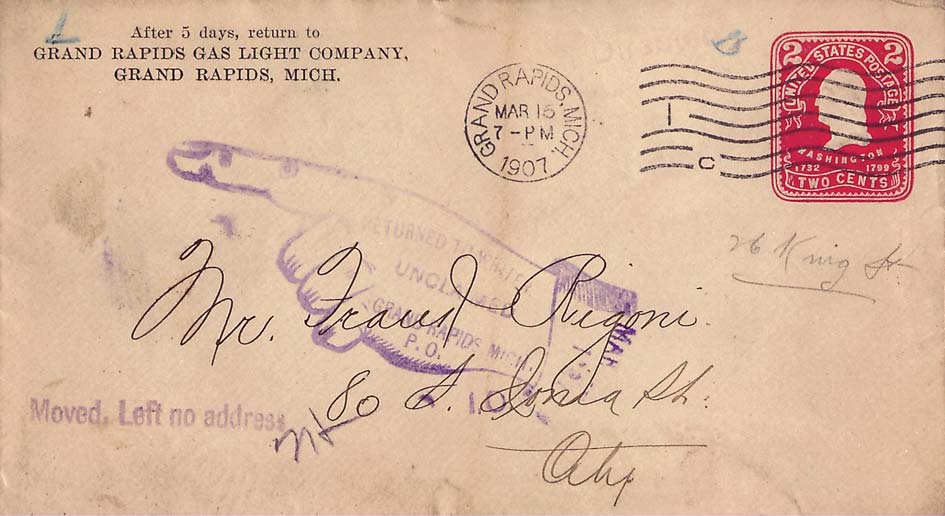 After 5 days, return to
GRAND RAPIDS GAS LIGHT COMPANY,
GRAND RAPIDS, MICH.
GRAND RAPIDS, MICH.
MAR 15
7-PM
1907
1
C
2 UNITED STATES POSTAGE 2
WASHINGTON
1732 1799
TWO CENTS
26 King St
RETURNED TO WRITER
UNCLAIMED
GRAND RAPIDS MICH.
P. O.
MAR
Mr. Rigoni
80 Ionia St.
City
Moved, Left no address